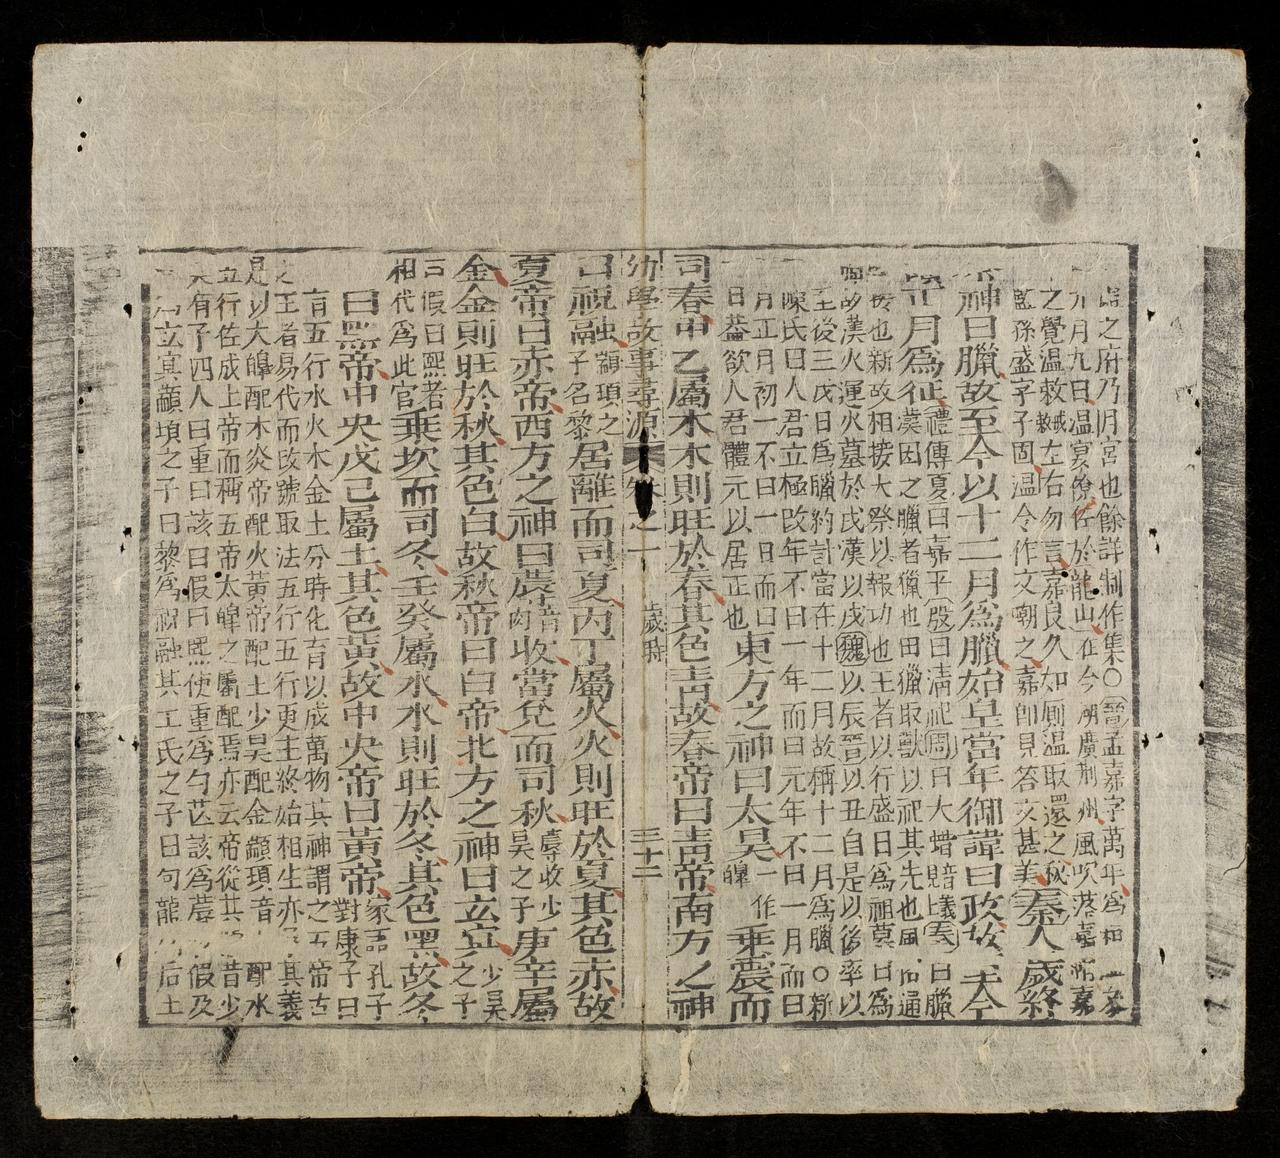 之府乃月宮也餘詳制作集○晉孟嘉字萬年爲桓
九月九日溫宴僚佐於龍山在今湖廣荆州風吹落嘉帽嘉
之覺溫敕左右勿言嘉良久如厠溫取還之
監孫盛字子固溫令作文嘲之嘉卽見答文甚美秦人歲終
神曰臘故至今以十二月爲臘始皇當年御諱曰政故至今
月爲征禮傳夏曰嘉平殷曰淸祀周曰大蜡秦曰臘
漢因之臘者獵也田獵取獸以祀其先也風俗通
也新故相接大祭以報功也王者以行盛日爲祖墓日爲
故漢火運火墓於戌漢以戌魏以辰晉以丑自是以後率以
至後三戊日爲臘約計當在十二月故稱十二月爲臘○新
陳氏曰人君立極改年不曰一年而曰元年不曰一月而曰
正月初一不曰一日而曰
日蓋欲人君體元以居正也東方之神曰太昊一作皥乘震而
司春甲乙屬木木則旺於春其色靑故春帝曰靑帝南方之神
幼學故事尋源 卷之一 歲時 三十二
曰祝融顓頊之子名黎居離而司夏丙丁屬火火則旺於夏其色赤故
夏帝曰赤帝西方之神曰蓐音肉收當兌而司秋蓐收少昊之子庚辛屬
金金則旺於秋其色白故秋帝曰白帝北方之神曰玄冥少昊之子
曰熙者相代爲此官乘坎而司冬壬癸屬水水則旺於冬其色黑故冬
曰黑帝中央戊己屬土其色黃故中央帝曰黃帝家語孔子對康子曰
有五行水火木金土分時化育以成萬物其神謂之五帝古
之王者易代而改號取法五行五行更王終始相生亦其義
是以大皥配木炎帝配火黃帝配土少昊配金顓頊配水
五行佐成上帝而稱五帝太皥之屬配焉亦云帝從其昔少
昊有子四人曰重曰該曰修曰熙使重爲勾芒該爲蓐及
爲玄冥顓頊之子曰黎爲祝融共工氏之子曰句龍爲后土